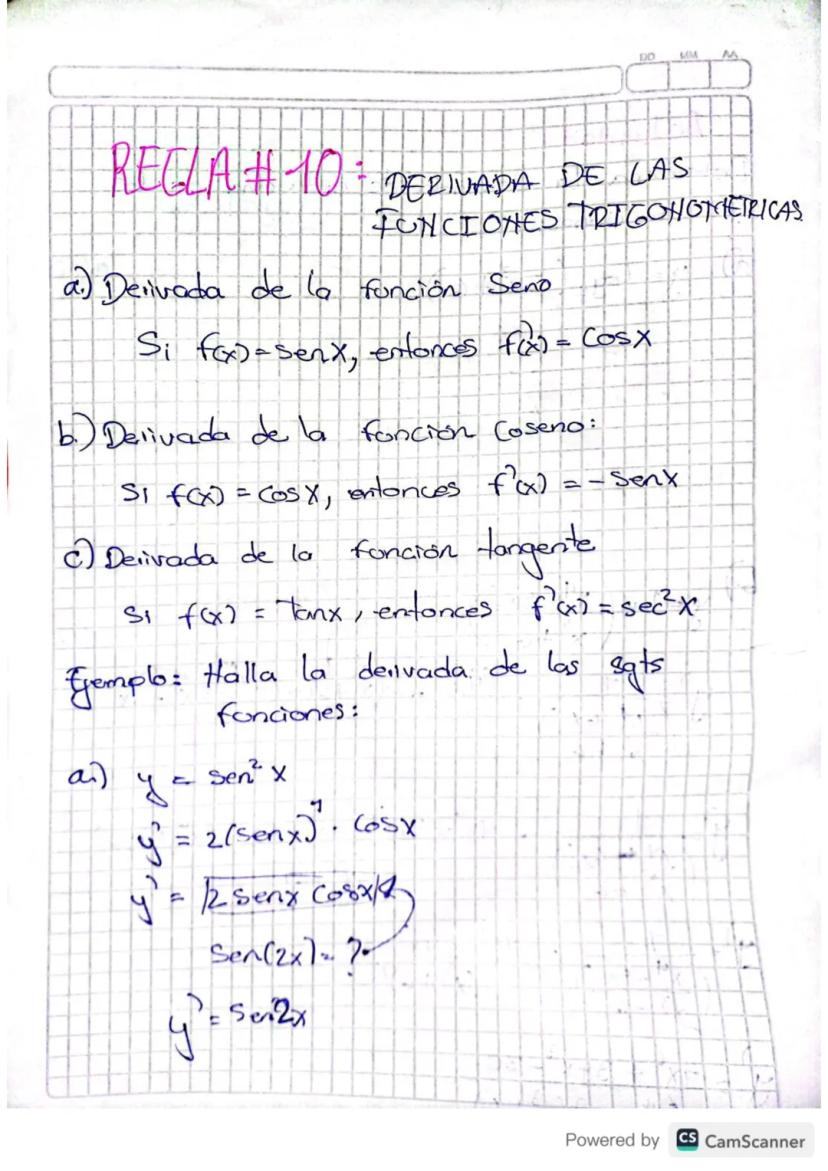 DD MM AA
REGLA # 10: DERIVADA DE LAS
FUNCIONES TRIGONOMETRICAS
a.) Derivada de la función Seno
Si f(x) = senx, entonces f'(x) = Cosx
b.) Derivada de la función Coseno:
Si f(x) = Cosx, entonces f'(x) = - Senx
c) Derivada de la función tangente
Si f(x) = Tanx, entonces f'(x) = sec²x
Ejemplo: Halla la derivada de las sgts
funciones:
a.) y = sen² x
y' = 2(senx)¹ · Cosx
y' = 2 senx Cosx
Sen(2x) = ?
y' = Sen2x
Powered by CS CamScanner